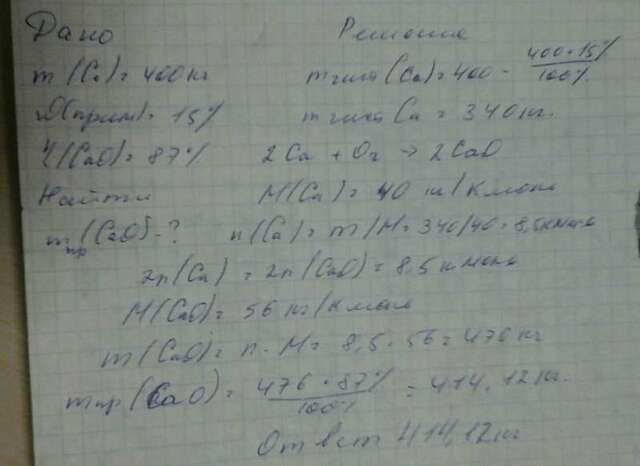 Дано Решение
m (Ca) = 400 кг m чист (Ca) = 400 - 400 * 15% / 100%
ω(прим) = 15% m чист Ca = 340 кг.
η(CaO) = 87% 2Ca + O2 → 2CaO
Найти M(Ca) = 40 кг/Кмоль
mпр(CaO) - ? n(Ca) = m/M = 340/40 = 8,5 кмоль
2n(Ca) = 2n(CaO) = 8,5 кмоль
M(CaO) = 56 кг/Кмоль
m(CaO) = n · M = 8,5 · 56 = 476 кг
mпр(CaO) = 476 * 87% / 100% = 414,12 кг.
Ответ 414,12 кг